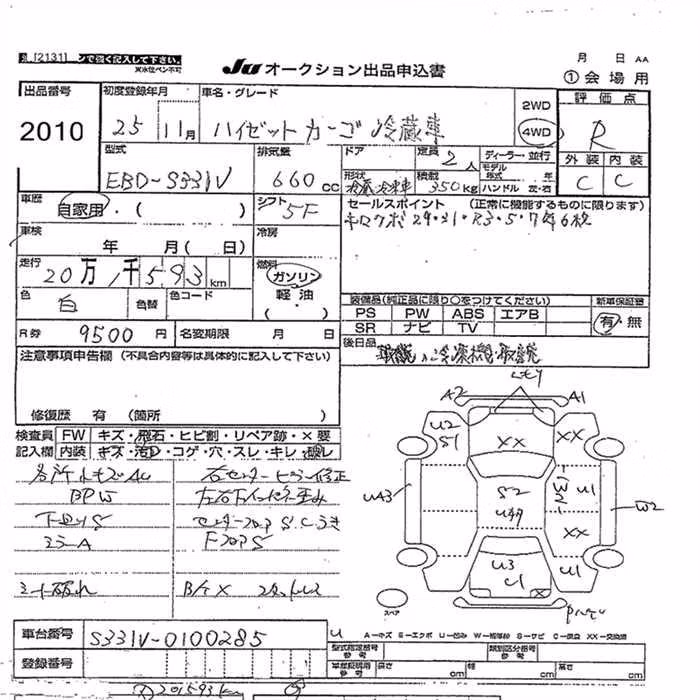 [2131]
ンで強く記入して下さい。
※水性ペン不可
JU オークション出品申込書
月 日 AA
①会場用
出品番号
2010
初度登録年月
25 11月
車名・グレード
ハイゼットカーゴ 冷蔵車
2WD
4WD
評価点
R
型式
EBD-S331V
排気量
660 cc
ドア
形状
冷蔵冷凍車
定員
2人
積載
350kg
ディーラー・並行
モデル年式 年
ハンドル 左・右
外装 内装
C C
車歴
自家用・( )
シフト
5F
セールスポイント (正常に機能するものに限ります)
キロクボ 29・31・R3・5・7年 6枚
車検
年 月( 日)
冷房
走行
20万1千593km
燃料
ガソリン
軽油
( ・ )
色
白
色替
色コード
装備品(純正品に限り○をつけてください)
PS PW ABS エアB
SR ナビ TV
新車保証書
有・無
R券
9500円
名変期限 月 日
後日品
取説、冷凍機取説
注意事項申告欄 (不具合内容等は具体的に記入して下さい)
修復歴 有 (箇所 )
検査員
記入欄
FW キズ・飛石・ヒビ割・リペア跡・×要
内装 キズ・汚れ・コゲ・穴・スレ・キレ・破レ
各所小キズAU
BPW
下回りS
ミラーA
シート破れ
右センターピラー修正
左右下インパネ歪み
センターフロアS.Cうき
FフロアS
B/ケX
A2
A1
U2
S1
XX
XX
U43
S2
U49
W2
U1
W2
XX
U3
U1
X
U1
スペア
車台番号
S331V-0100285
登録番号
U A-キズ E-エクボ U-凹み W-補修跡 S-サビ C-腐食 XX-交換済
型式指定番号
参考
類別区分番号
参考
車庫証明用
参考
長さ cm
幅 cm
高さ cm
201593km